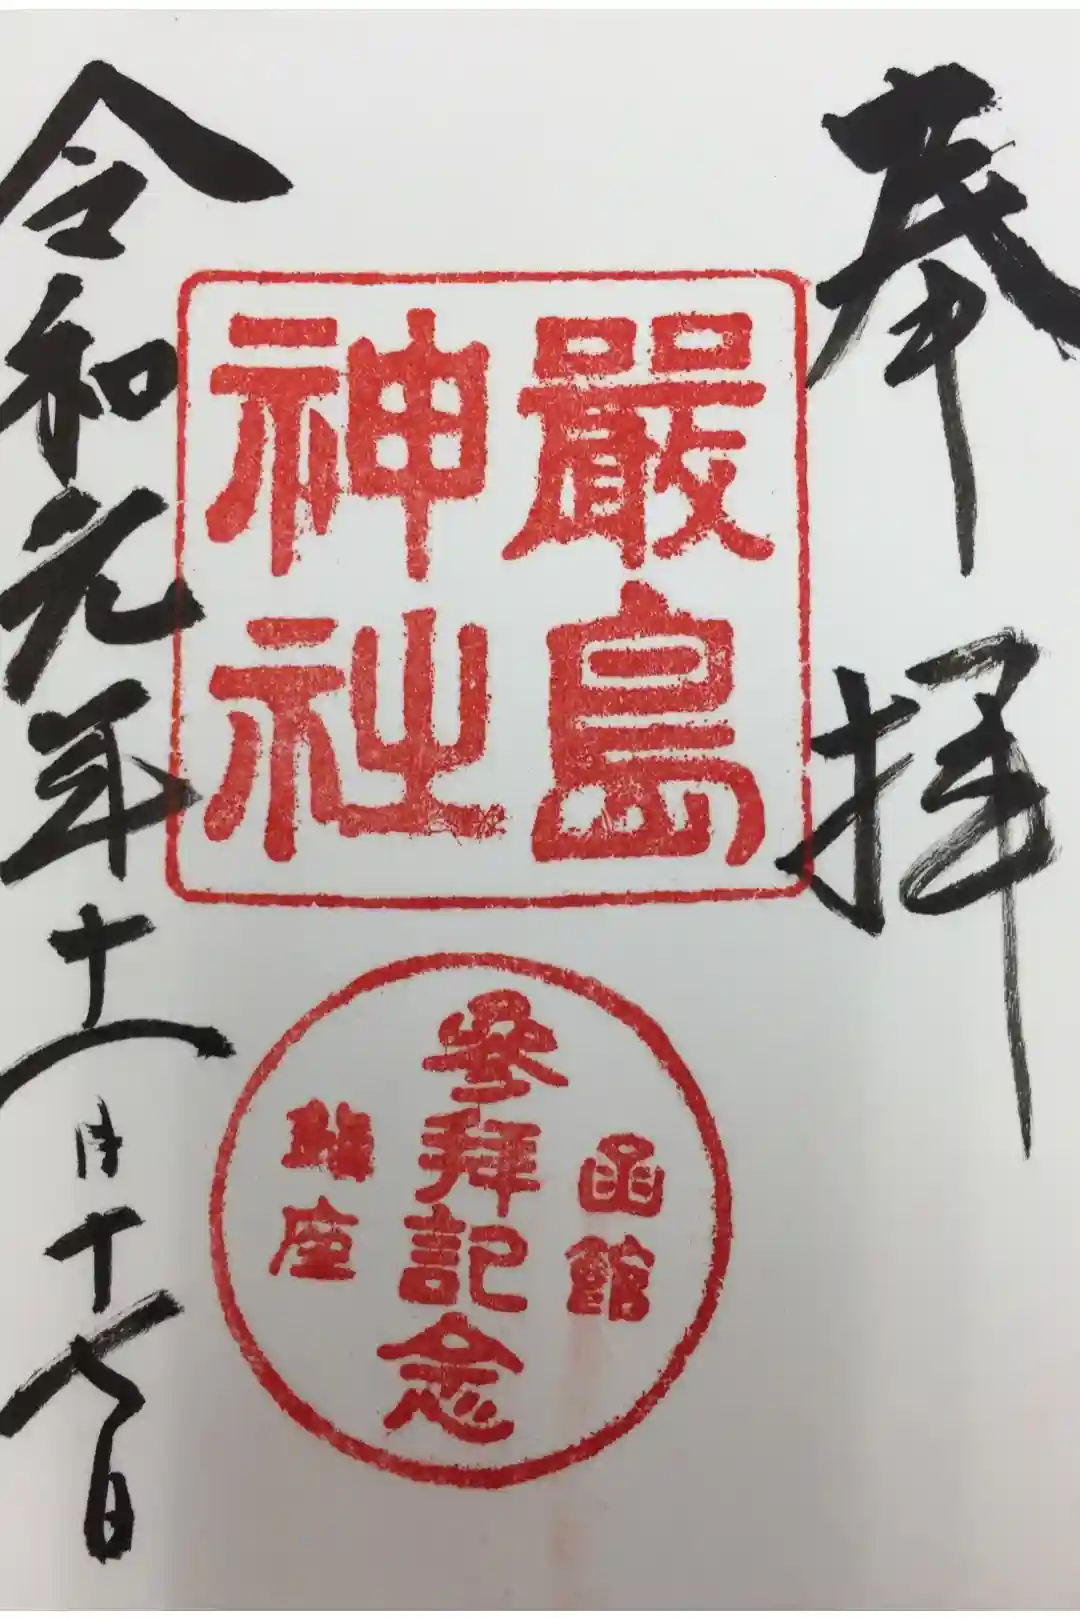 奉拝
嚴島
神社
函館
參拜記念
鎮座
令和元年十一月十七日